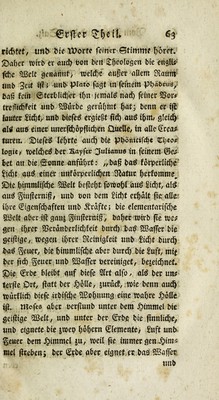 Erster Theil. 63
richtet, und die Worte seiner Stimme höret.
Daher wird er auch von den Theologen die engli-
sche Welt genannt, welche außer allem Raum
und Zeit ist; und Plato sagt in seinem Phädrus,
daß kein Sterblicher ihn jemals nach seiner Vor-
treflichkeit und Würde gerühmt hat; denn er ist
lauter Licht, und dieses ergießt sich aus ihm, gleich
als aus einer unerschöpflichen Quelle, in alle Crea-
turen. Dieses lehrte auch die Phönicische Theo-
logie, welches der Kayser Julianus in seinem Ge-
bet an die Sonne anführt: „daß das körperliche
Licht aus einer unkörperlichen Natur herkomme.
Die himmlische Welt besteht sowohl aus Licht, als
aus Finsterniß, und von dem Licht erhält sie alle
ihre Eigenschaften und Kräfte; die elementarische
Welt aber ist ganz Finsterniß, daher wird sie we-
gen ihrer Veränderlichkeit durch das Wasser die
geistige, wegen ihrer Reinigkeit und Licht durch
das Feuer, die himmlische aber durch die Luft, mit
der sich Feuer und Wasser vereiniget, bezeichnet.
Die Erde bleibt auf diese Art also, als der un-
terste Ort, statt der Hölle, zurück, wie denn auch
würklich diese irdische Wohnung eine wahre Hölle
ist. Moses aber verstund unter dem Himmel die
geistige Welt, und unter der Erde die sinnliche,
und eignete die zwey höhern Elemente, Luft und
Feuer dem Himmel zu, weil sie immer gen Him-
mel streben; der Erde aber eignet er das Wasser
und